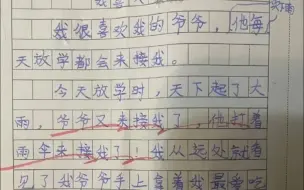 我喜
我很喜欢我的爷爷，他每
天放学都会来接我。
今天放学时，天下起了大
雨，爷爷又来接我了，他打着
雨伞来接我了！我从远处就看
见了我爷爷手上拿着我最爱吃